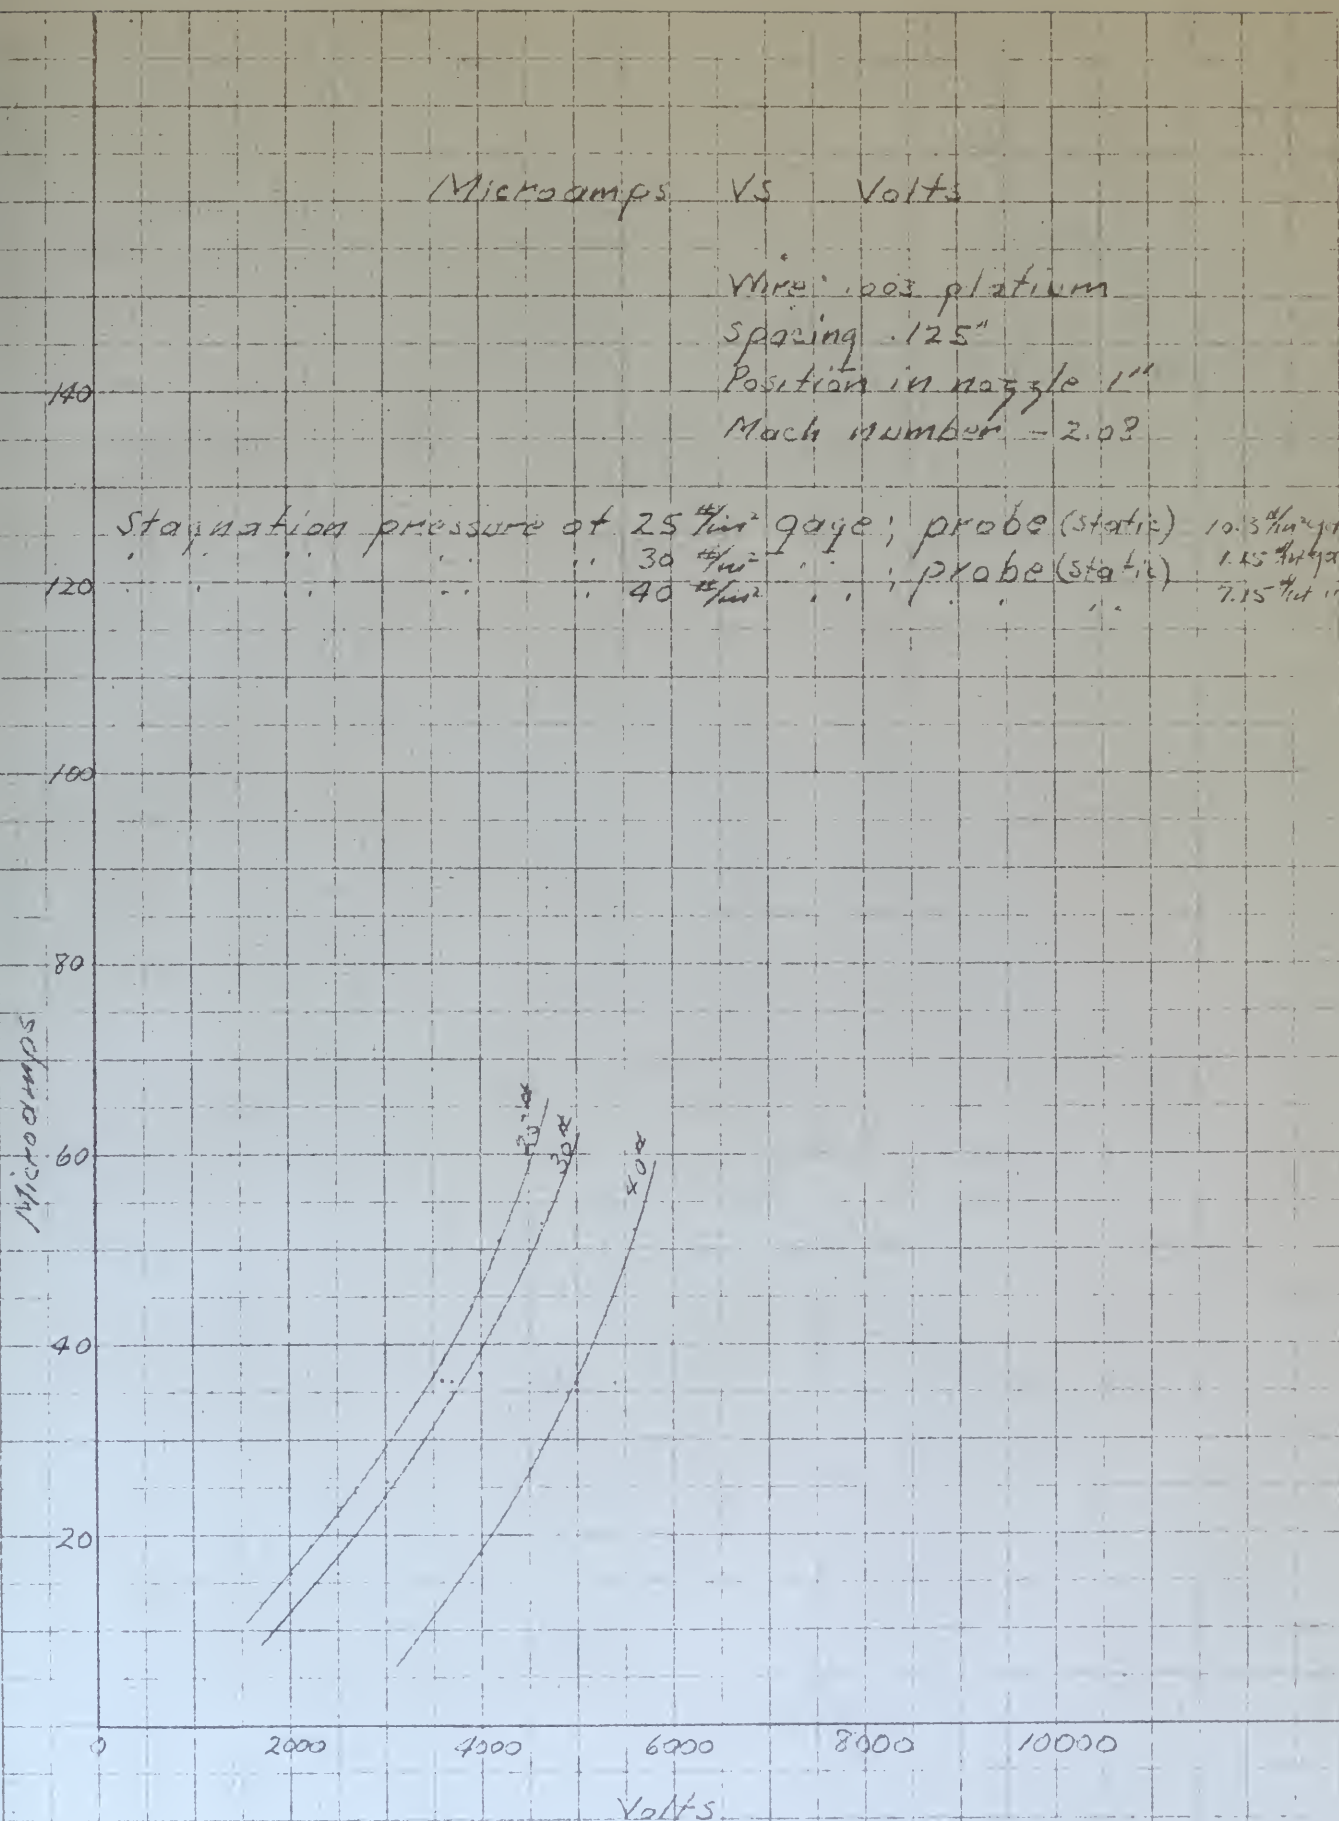 Microamps VS Volts
Wire: .003 platium
Spacing .125"
Position in nozzle 1"
Mach number - 2.03
Stagnation pressure at 25 #/in² gage; probe (static) 10.3 #/in²
" " " " 30 #/in² " " ; probe (static)
" " " " 40 #/in² " " ; " " 7.15
140
120
100
80
60
40
20
Microamps
30#
40#
0 2000 4000 6000 8000 10000
Volts